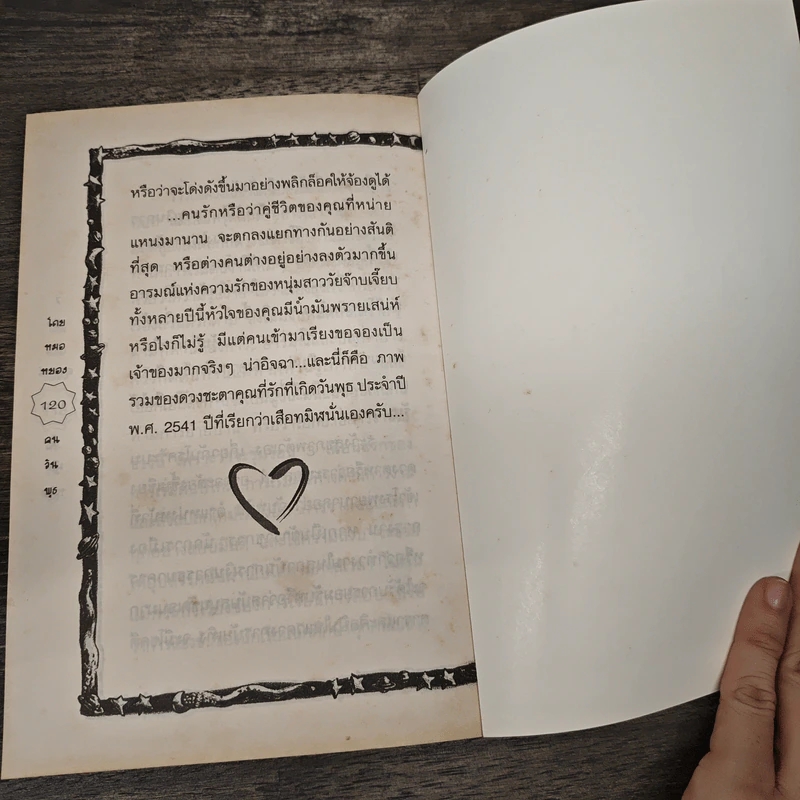 หรือว่าจะโด่งดังขึ้นมาอย่างพลิกล็อคให้จ้องดูได้
...คนรักหรือว่าคู่ชีวิตของคุณที่หน่าย
แหนงมานาน จะตกลงแยกทางกันอย่างสันติ
ที่สุด หรือต่างคนต่างอยู่อย่างลงตัวมากขึ้น
อารมณ์แห่งความรักของหนุ่มสาววัยจ๊าบเจี๊ยบ
ทั้งหลายปีนี้หัวใจของคุณมีน้ำมันพรายเสน่ห์
หรือไงก็ไม่รู้ มีแต่คนเข้ามาเรียงขอจองเป็น
เจ้าของมากจริงๆ น่าอิจฉา...และนี่ก็คือ ภาพ
รวมของดวงชะตาคุณที่รักที่เกิดวันพุธ ประจำปี
พ.ศ. 2541 ปีที่เรียกว่าเสือทมิฬนั่นเองครับ...
โดย
หมอ
หยอง
120
คน
วัน
พุธ